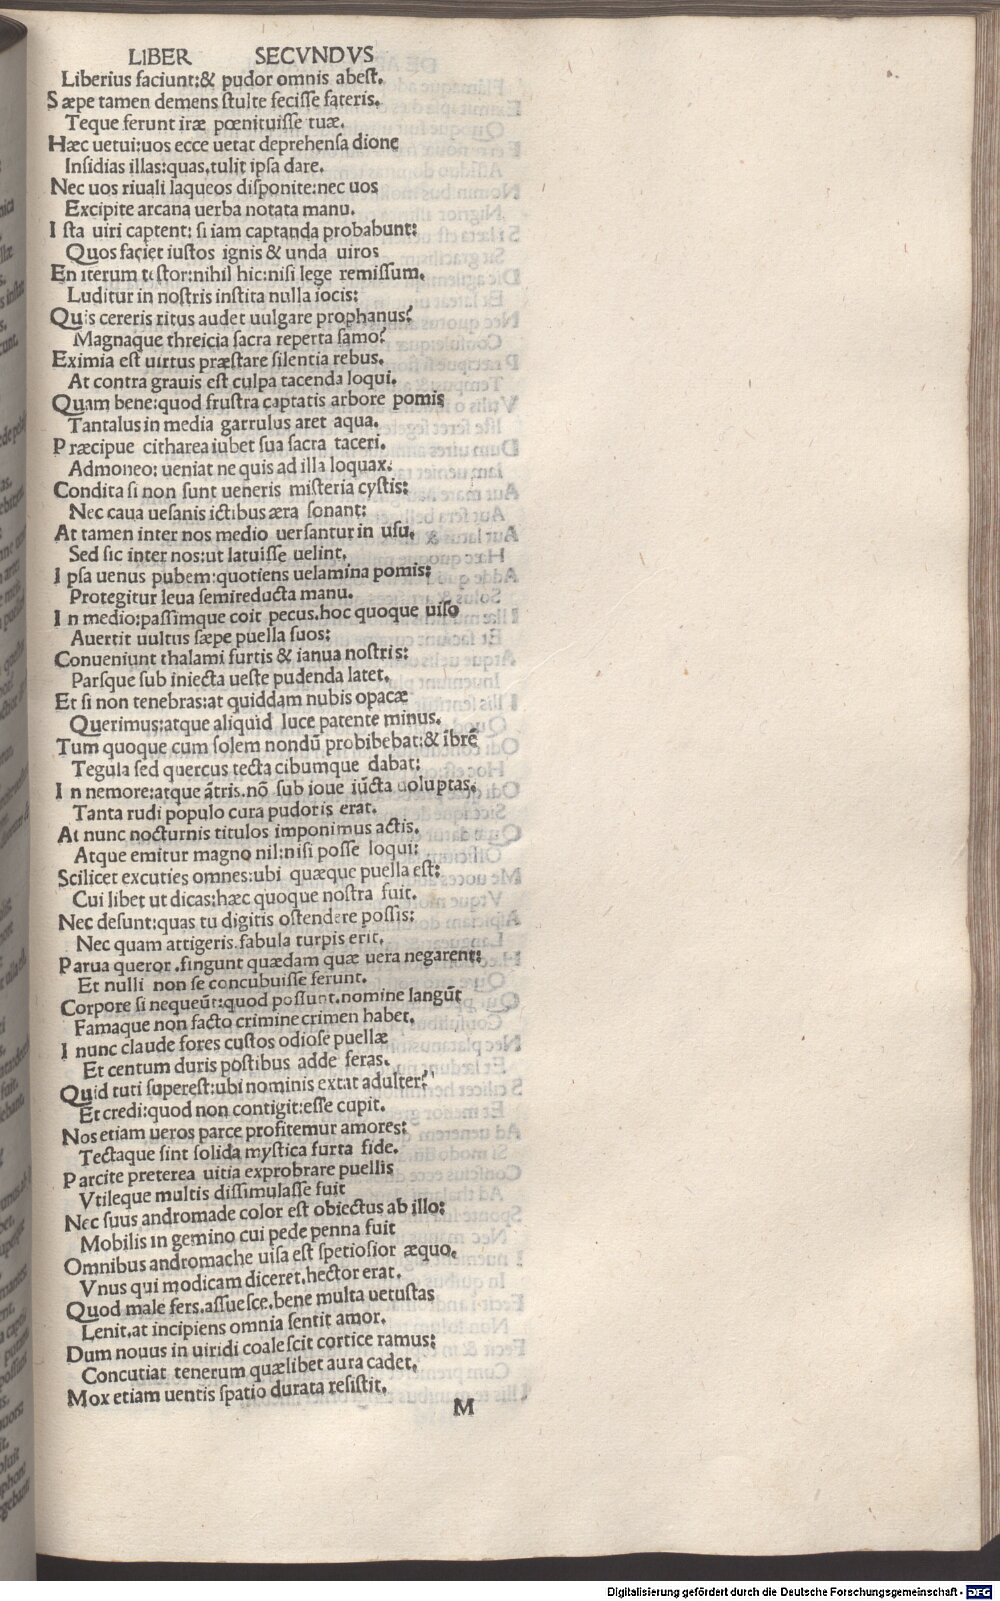 LIBER SECVNDVS
Liberius faciunt:& pudor omnis abest.
Sæpe tamen demens stulte fecisse fateris.
Teque ferunt iræ pœnituisse tuæ.
Hæc uetui:uos ecce uetat deprehensa dione
Insidias illas:quas.tulit ipsa dare.
Nec uos riuali laqueos disponite:nec uos
Excipite arcana uerba notata manu.
Ista uiri captent: si iam captanda probabunt:
Quos faciet iustos ignis & unda uiros
En iterum testor:nihil hic:nisi lege remissum.
Luditur in nostris instita nulla iocis:
Quis cereris ritus audet uulgare prophanus?
Magnaque threicia sacra reperta samo?
Eximia est uirtus præstare silentia rebus.
At contra grauis est culpa tacenda loqui.
Quam bene:quod frustra captatis arbore pomis
Tantalus in media garrulus aret aqua.
Præcipue citharea iubet sua sacra taceri.
Admoneo: ueniat ne quis ad illa loquax.
Condita si non sunt ueneris misteria cystis:
Nec caua uesanis ictibus æra sonant:
At tamen inter nos medio uersantur in usu.
Sed sic inter nos:ut latuisse uelint.
Ipsa uenus pubem:quotiens uelamina pomis:
Protegitur leua semireducta manu.
In medio:passimque coit pecus.hoc quoque uiso
Auertit uultus sæpe puella suos:
Conueniunt thalami furtis & ianua nostris:
Parsque sub iniecta ueste pudenda latet.
Et si non tenebras:at quiddam nubis opacæ
Querimus:atque aliquid luce patente minus.
Tum quoque cum solem nondū probibebat:& ībrē
Tegula sed quercus tecta cibumque dabat:
In nemore:atque ātris.nō sub ioue iūcta uoluptas.
Tanta rudi populo cura pudoris erat.
At nunc nocturnis titulos imponimus actis.
Atque emitur magno nil:nisi posse loqui:
Scilicet excuties omnes:ubi quæque puella est:
Cui libet ut dicas:hæc quoque nostra fuit.
Nec desunt:quas tu digitis ostendere possis:
Nec quam attigeris.fabula turpis erit.
Parua queror.fingunt quædam quæ uera negarent:
Et nulli non se concubuisse ferunt.
Corpore si nequeūt:quod possunt.nomine langūt
Famaque non facto crimine crimen habet.
I nunc claude fores custos odiose puellæ
Et centum duris postibus adde seras.
Quid tuti superest:ubi nominis extat adulter?
Et credi:quod non contigit:esse cupit.
Nos etiam ueros parce profitemur amores:
Tectaque sint solida mystica furta fide.
Parcite preterea uitia exprobrare puellis
Vtileque multis dissimulasse fuit
Nec suus andromade color est obiectus ab illo:
Mobilis in gemino cui pede penna fuit
Omnibus andromache uisa est spetiosior æquo.
Vnus qui modicam diceret.hector erat.
Quod male fers.assuesce.bene multa uetustas
Lenit.at incipiens omnia sentit amor.
Dum nouus in uiridi coalescit cortice ramus:
Concutiat tenerum quælibet aura cadet.
Mox etiam uentis spatio durata resistit.
M
Digitalisierung gefördert durch die Deutsche Forschungsgemeinschaft - DFG